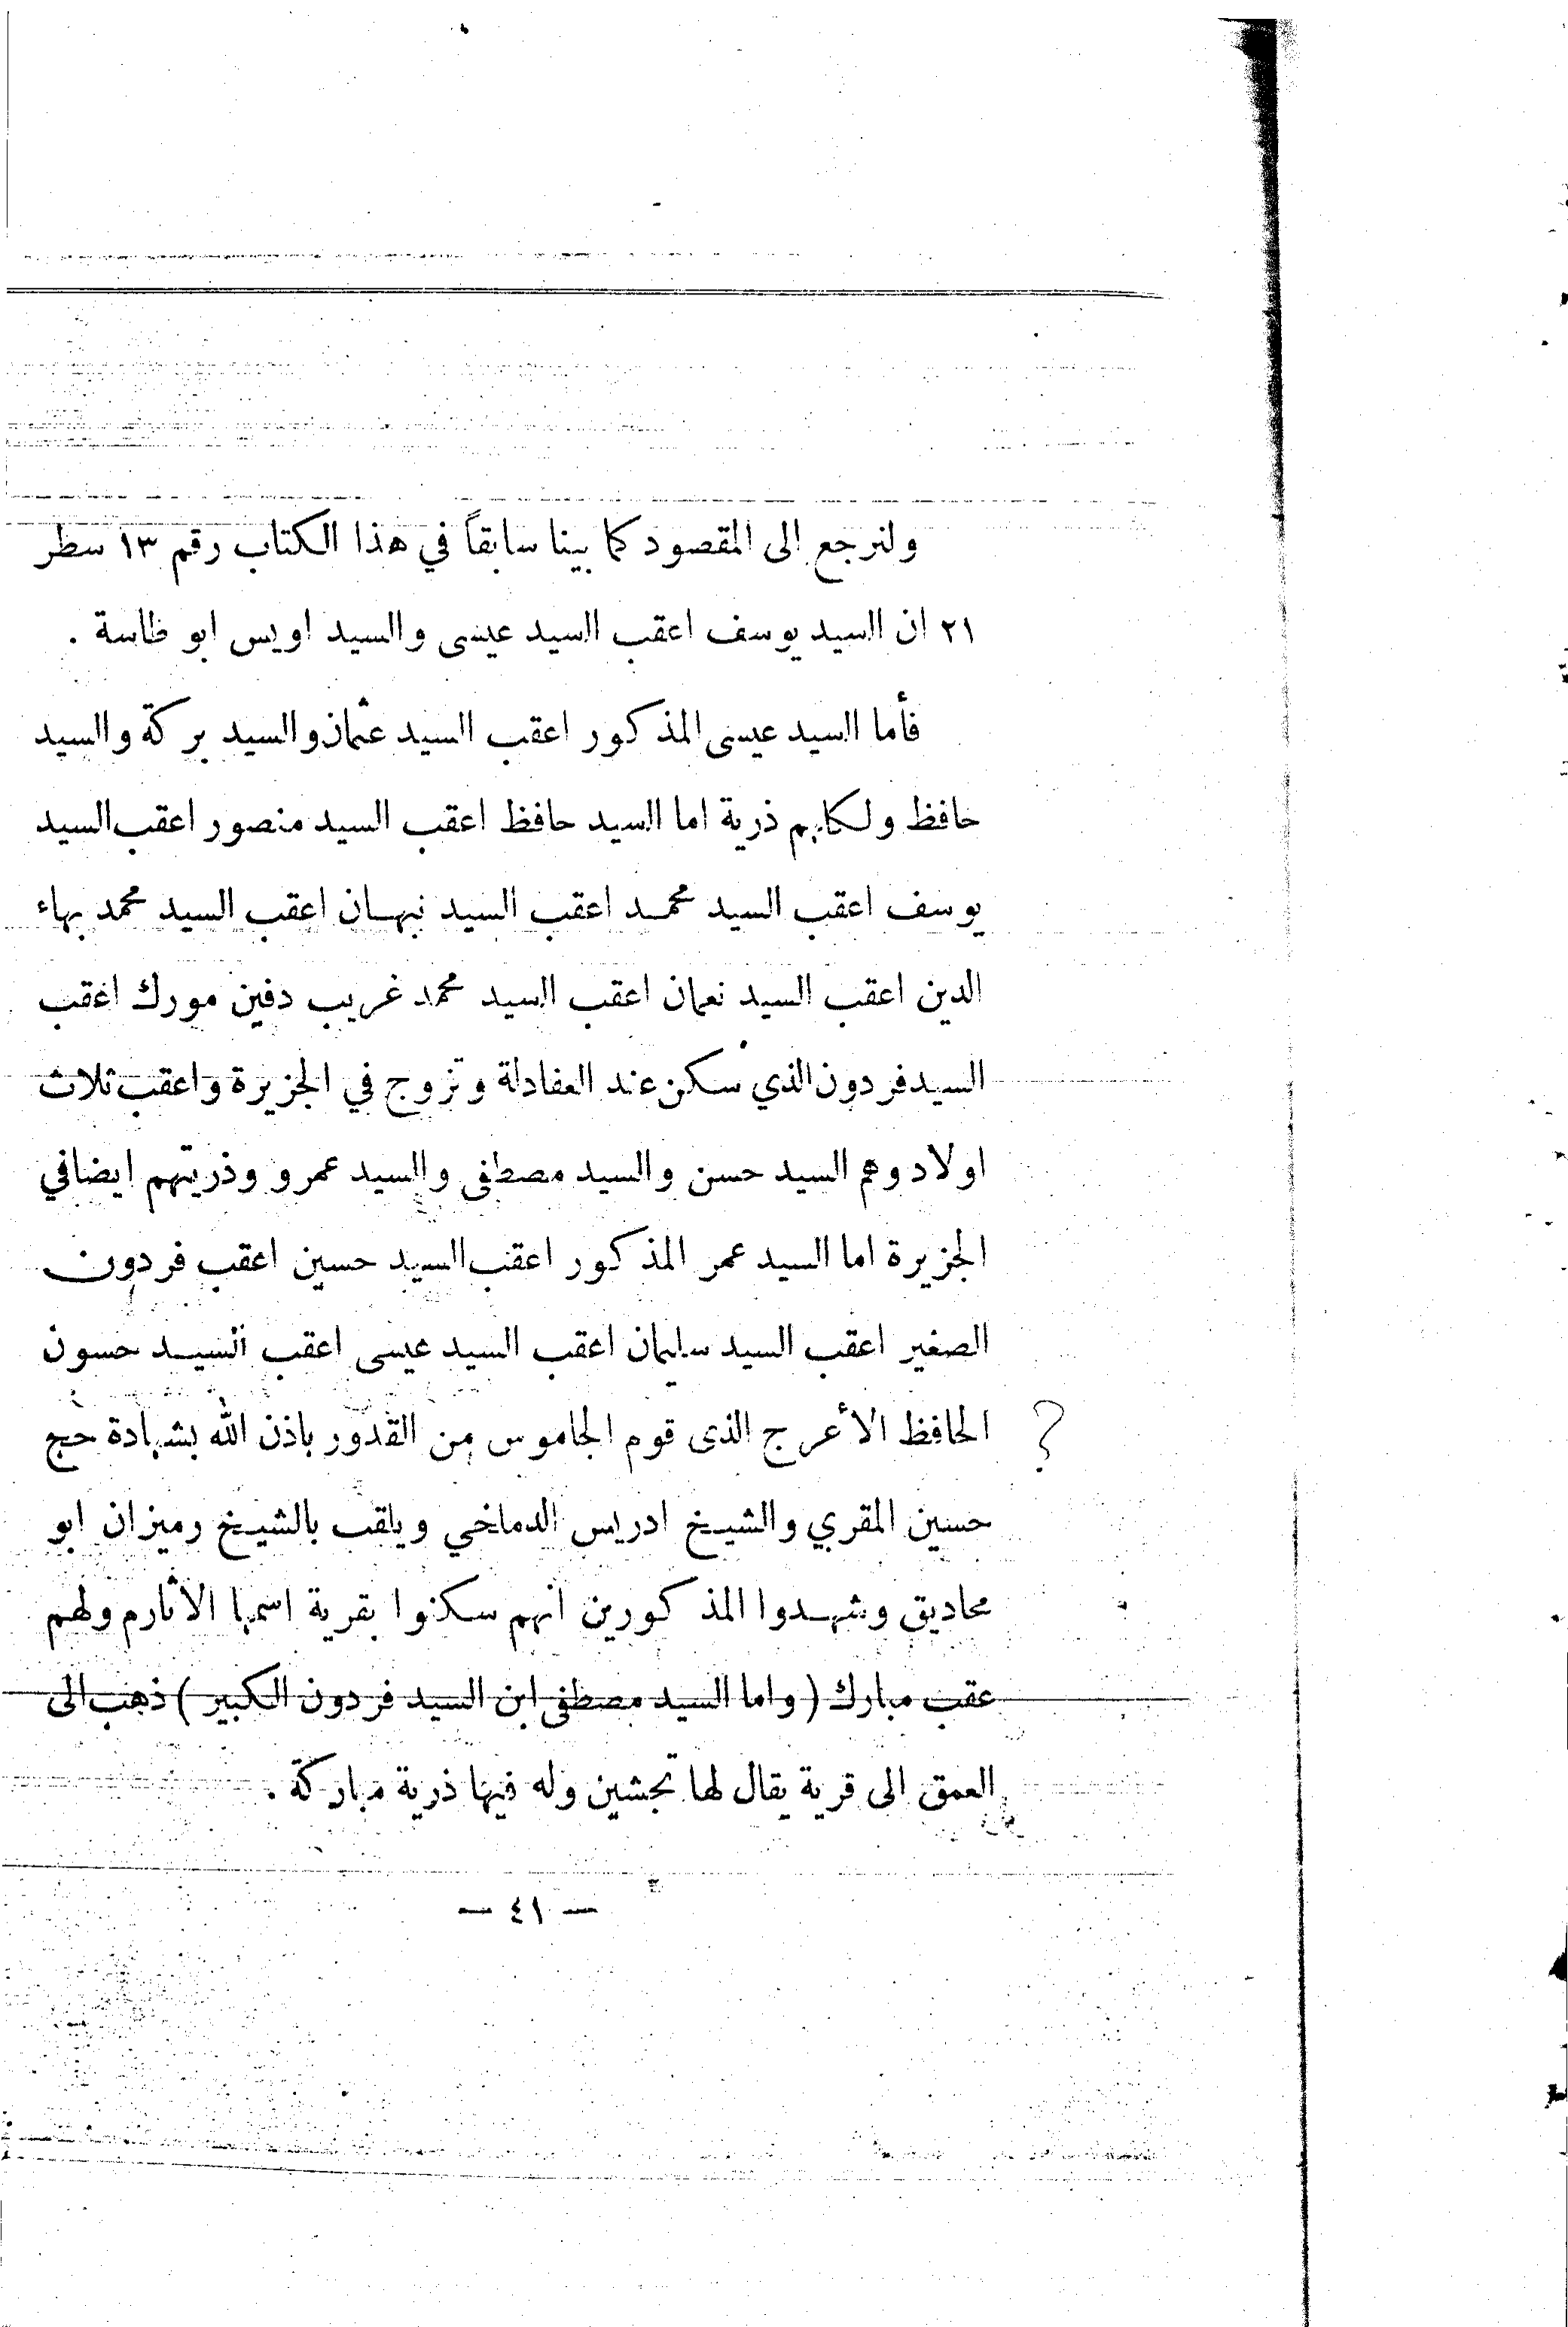 ولنرجع الى المقصود كما بينا سابقاً في هذا الكتاب رقم ١٣ سطر
٢١ ان السيد يوسف اعقب السيد عيسى والسيد اويس ابو طاسة .
فأما السيد عيسى المذكور اعقب السيد عثمان والسيد بركة والسيد
حافظ ولكلهم ذرية اما السيد حافظ اعقب السيد منصور اعقب السيد
يوسف اعقب السيد محمد اعقب السيد نبهان اعقب السيد محمد بهاء
الدين اعقب السيد نعمان اعقب السيد محمد غريب دفين مورك اعقب
السيد فردون الذي سكن عند العفادلة وتزوج في الجزيرة واعقب ثلاث
اولاد وهم السيد حسن والسيد مصطفى والسيد عمرو وذريتهم ايضا في
الجزيرة اما السيد عمر المذكور اعقب السيد حسين اعقب فردون
الصغير اعقب السيد سليمان اعقب السيد عيسى اعقب السيد حسون
؟ الحافظ الأعرج الذى قوم الجاموس من القدور باذن الله بشهادة حج
حسين المقري والشيخ ادريس الدماخي ويلقب بالشيخ رميزان ابو
محاديق وشهدوا المذكورين انهم سكنوا بقرية اسمها الاثارم ولهم
عقب مبارك ( واما السيد مصطفى ابن السيد فردون الكبير ) ذهب الى
العمق الى قرية يقال لها تجشين وله فيها ذرية مباركة .
— ٤١ —